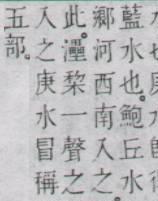 藍水也。鮑丘水
鄉河西南入之。
此。灅棃一聲之
入之庚水冒稱
五部。